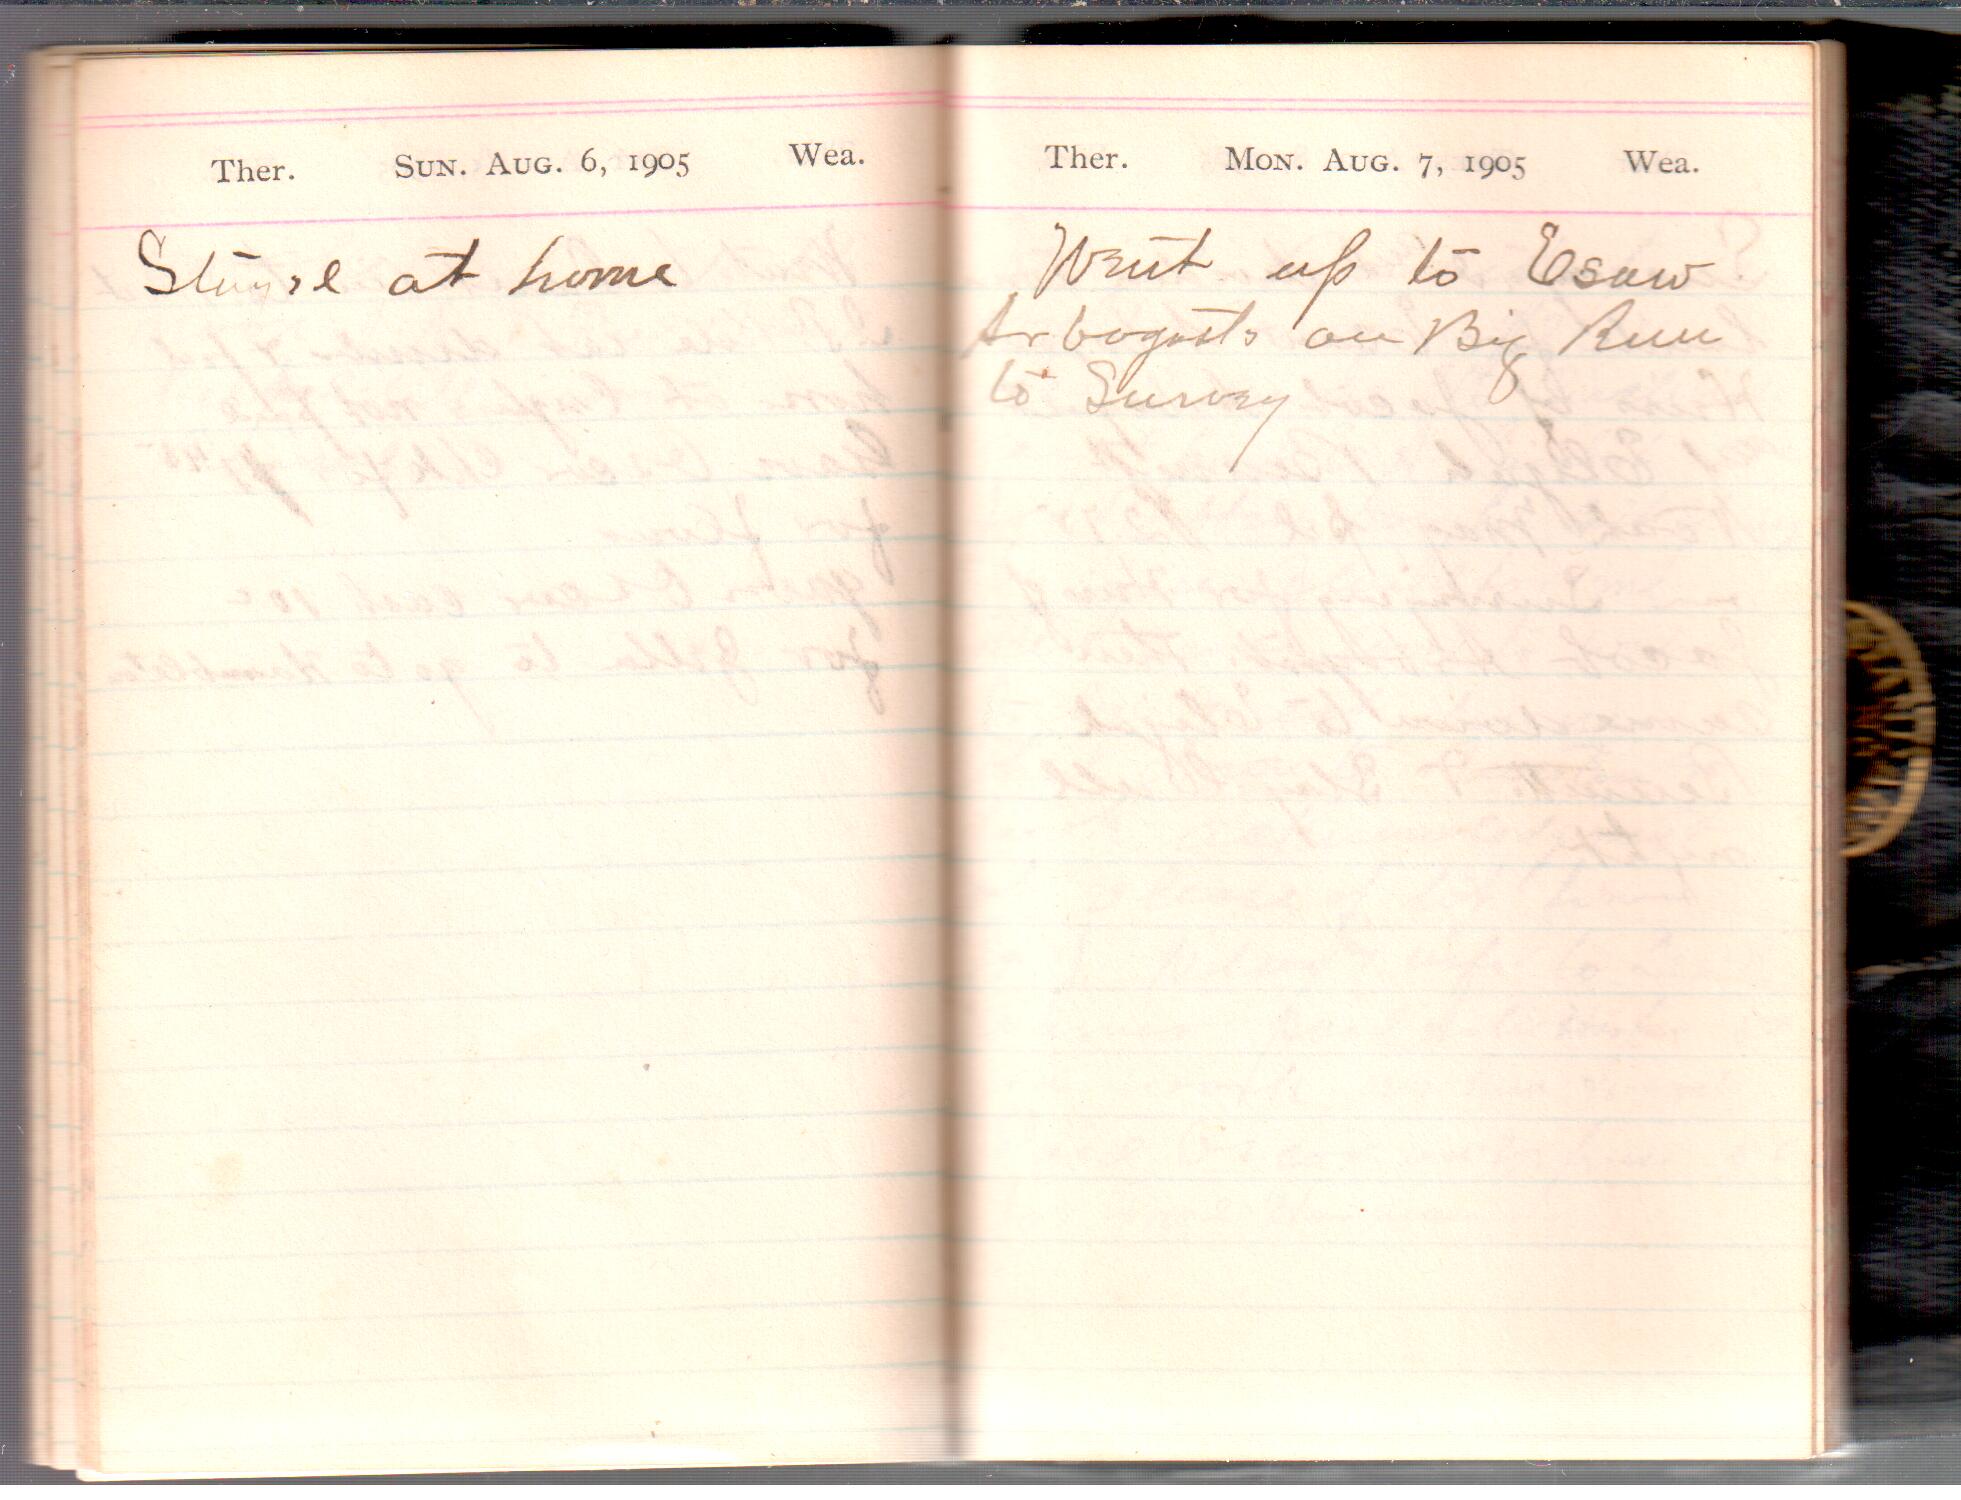 Ther. Sun. Aug. 6, 1905 Wea.
Stayed at home
Ther. Mon. Aug. 7, 1905 Wea.
Went up to Esaw
Arbogasts on Big Run
to Survey